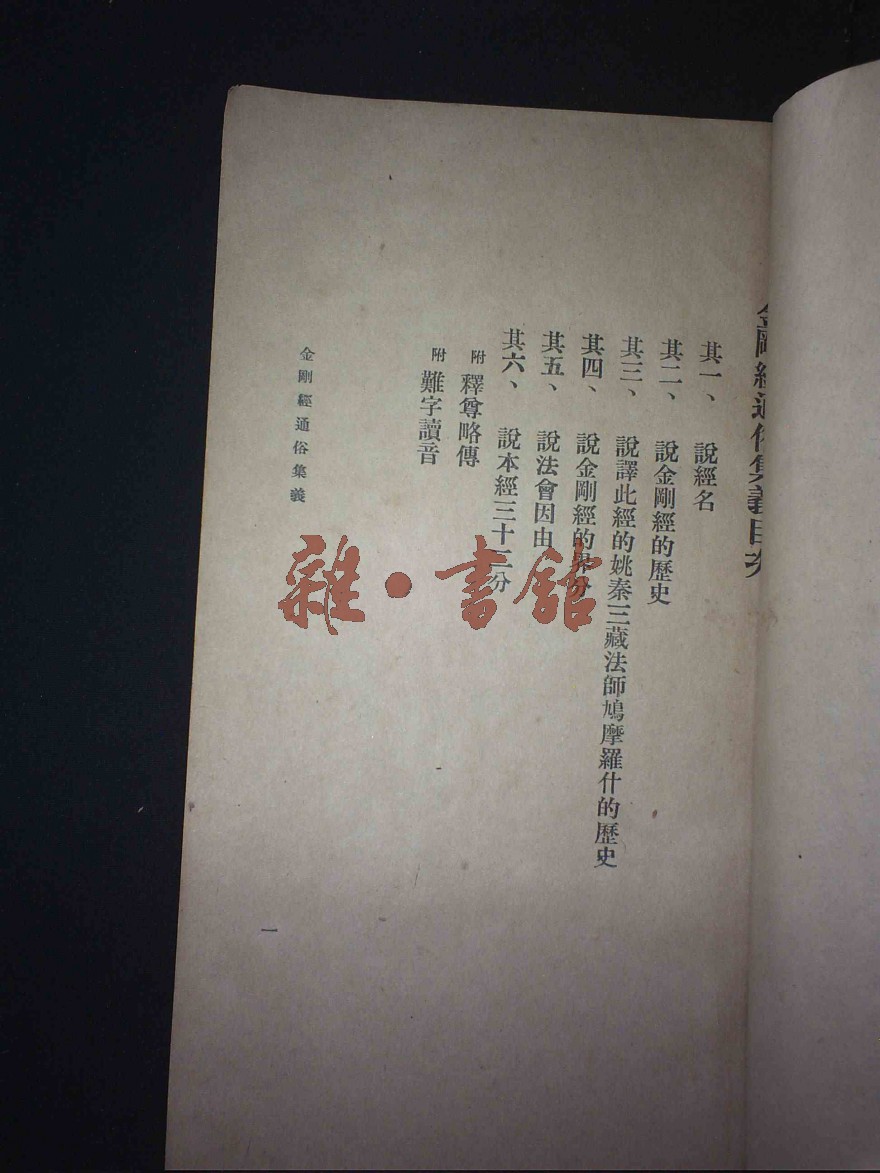 金剛經通俗集義目次
其一、 說經名
其二、 說金剛經的歷史
其三、 說譯此經的姚秦三藏法師鳩摩羅什的歷史
其四、 說金剛經的界分
其五、 說法會因由
其六、 說本經三十二分
附 釋尊略傳
附 難字讀音
金剛經通俗集義
一
雜·書館